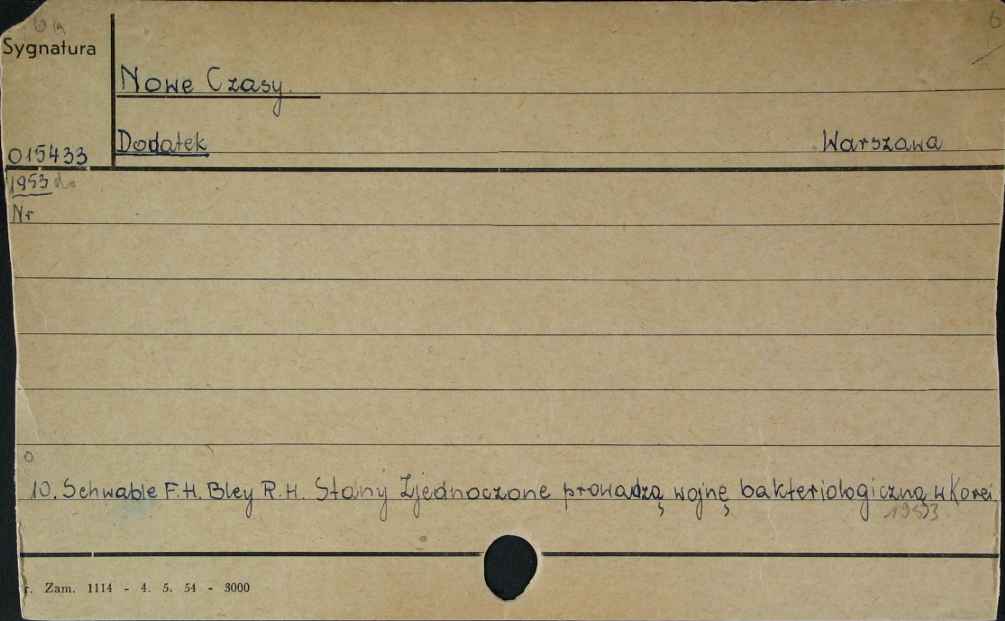 Sygnatura
Nowe Czasy.
Dodatek Warszawa
015433
1953
Nr
10. Schwable F.H. Bley R.H. Stany Zjednoczone prowadzą wojnę bakteriologiczną w Korei
1953
r. Zam. 1114 - 4. 5. 54 - 3000